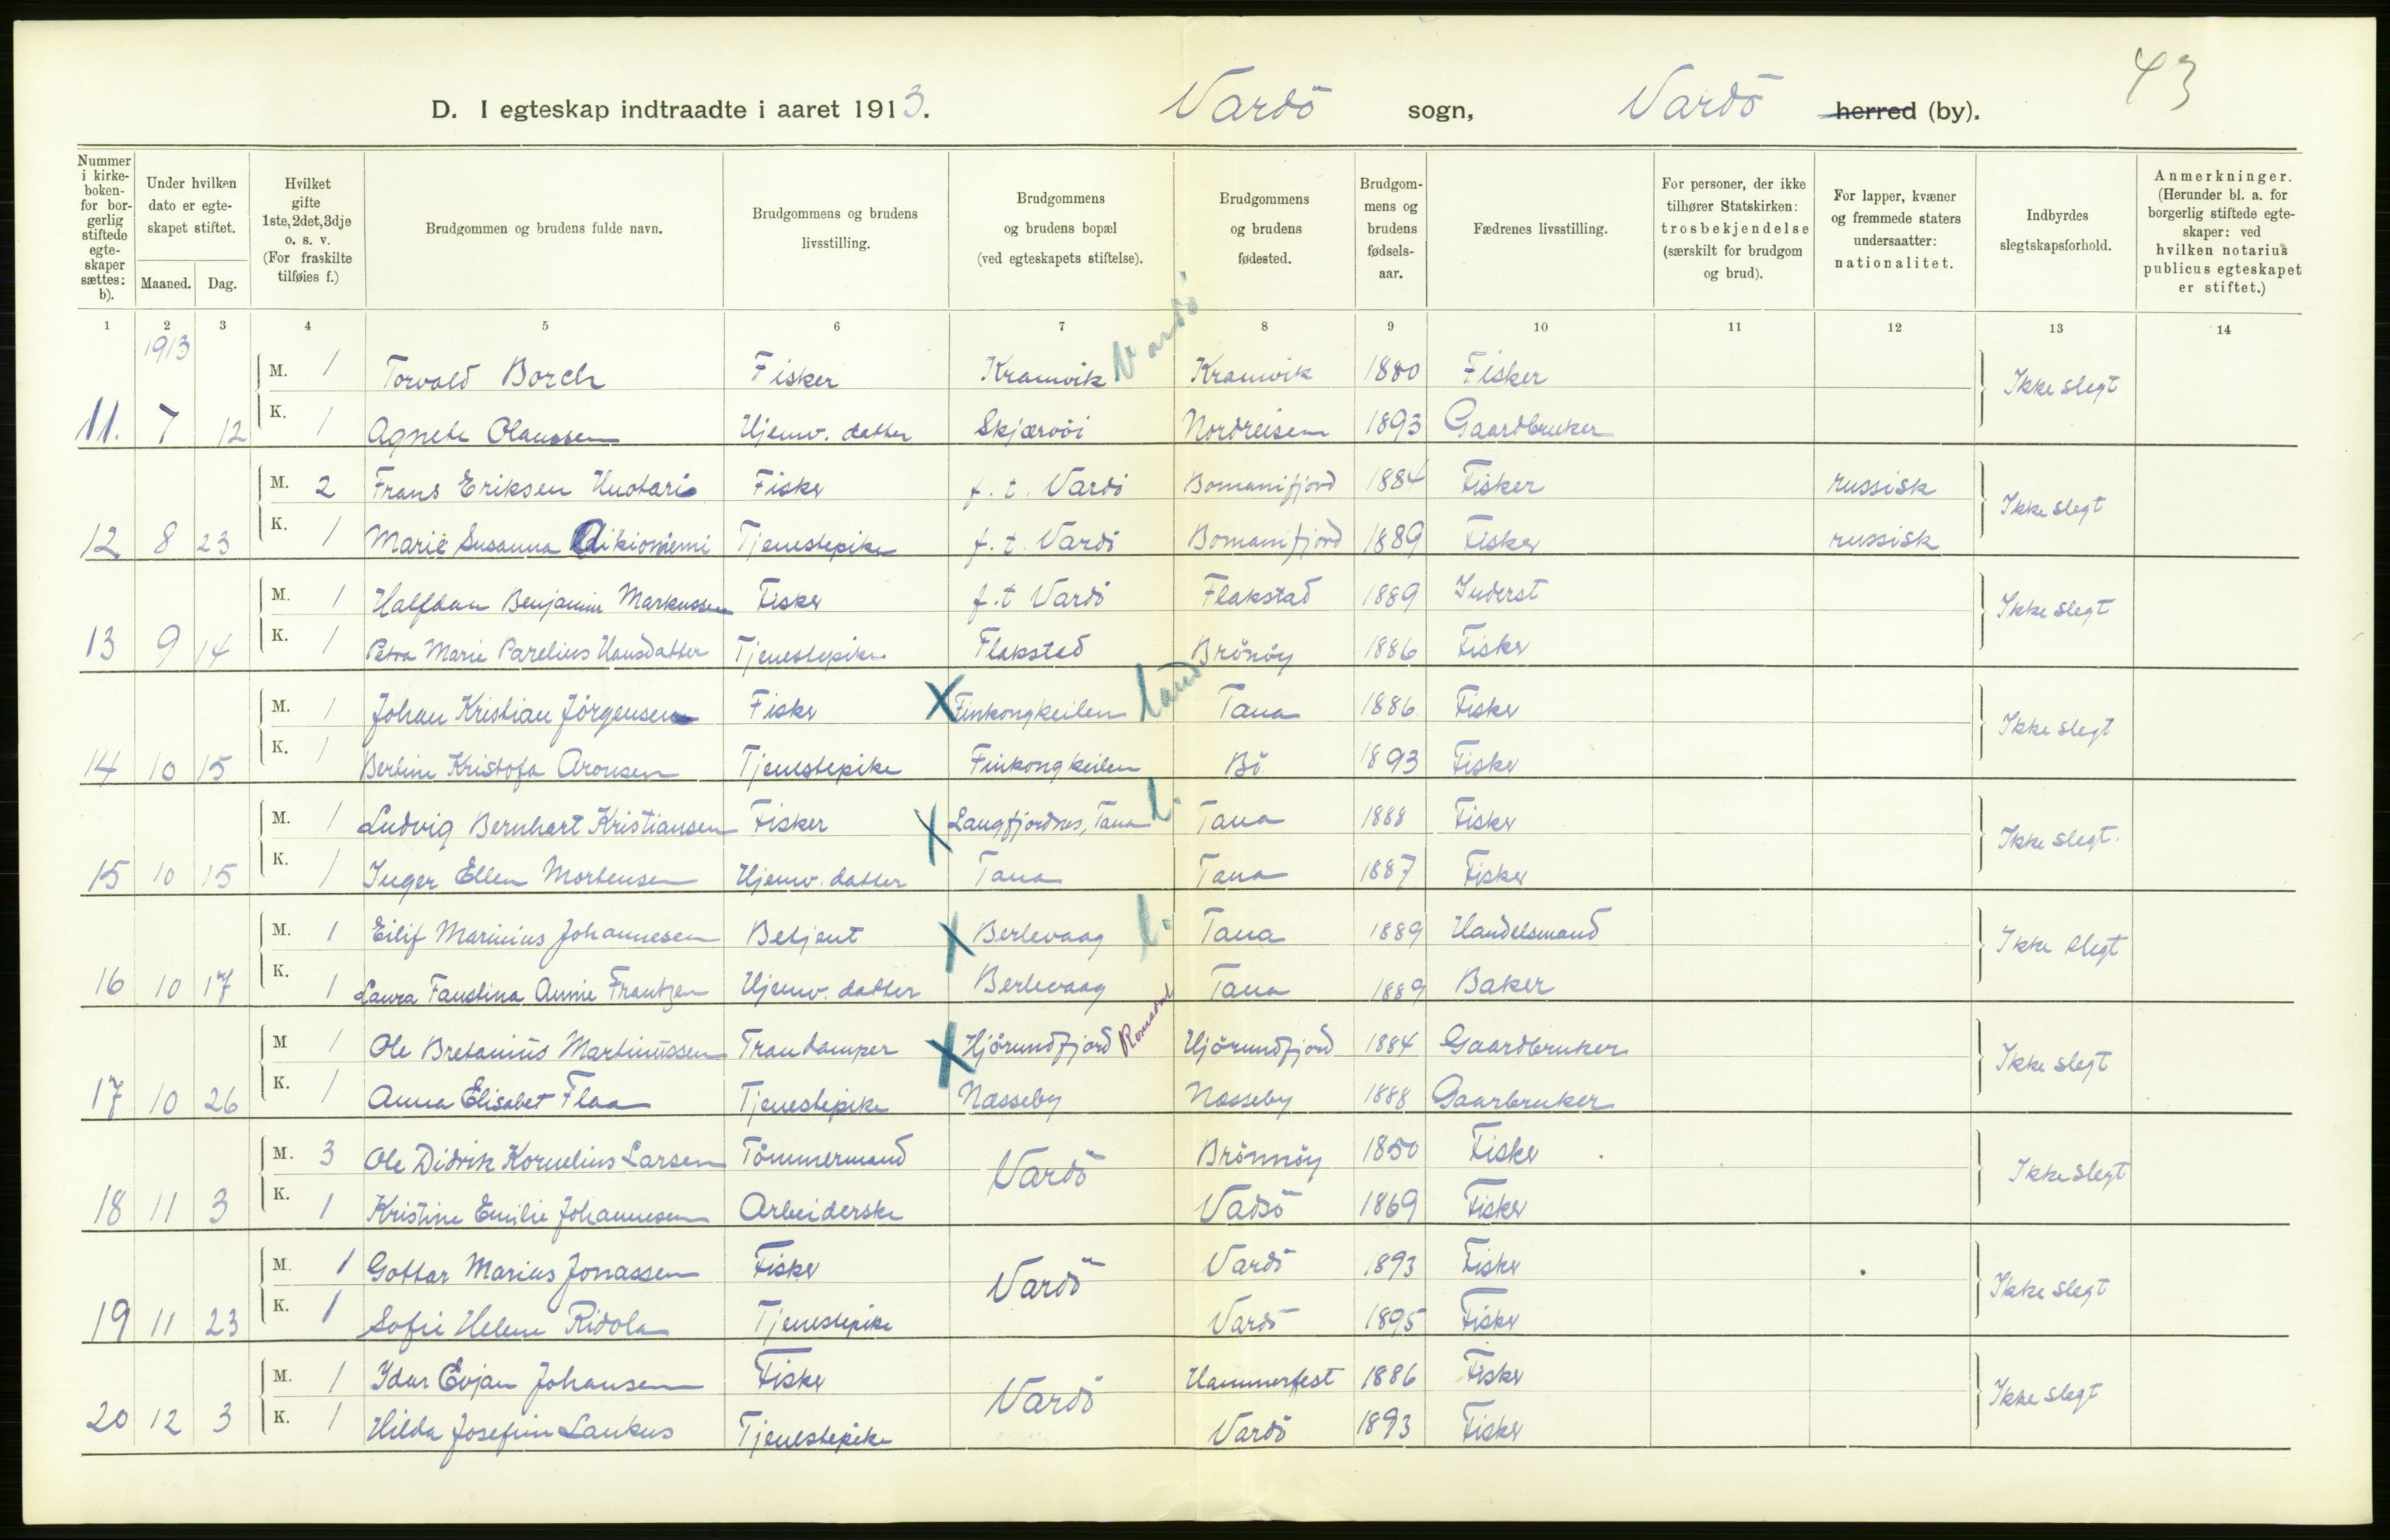 43
D. I egteskap indtraadte i aaret 1913. Vardö sogn, Vardö herred (by).
Nummer i kirke-boken- for bor-gerlig stiftede egte-skaper sættes: b).
Under hvilken dato er egte-skapet stiftet.
Maaned. Dag.
Hvilket gifte 1ste, 2det, 3dje o. s. v. (For fraskilte tilføies f.)
Brudgommen og brudens fulde navn.
Brudgommens og brudens livsstilling.
Brudgommens og brudens bopæl (ved egteskapets stiftelse).
Brudgommens og brudens fødested.
Brudgom-mens og brudens fødsels-aar.
Fædrenes livsstilling.
For personer, der ikke tilhører Statskirken: trosbekjendelse (særskilt for brudgom og brud).
For lapper, kvæner og fremmede staters undersaatter: nationalitet.
Indbyrdes slegtskapsforhold.
Anmerkninger. (Herunder bl. a. for borgerlig stiftede egte-skaper: ved hvilken notarius publicus egteskapet er stiftet.)
1 2 3 4 5 6 7 8 9 10 11 12 13 14
1913
M. 1 Torvald Borch Fisker Kramvik Vardö Kramvik 1880 Fisker Ikke slegt
11. 7 12 K. 1 Agnete Olaussen Hjemv. datter Skjærvöi Nordreisen 1893 Gaardbruker
M. 2 Frans Eriksen Huotari Fisker f. t. Vardö Bomanifjord 1884 Fisker russisk Ikke slegt
12 8 23 K. 1 Marie Susanna Aikioniemi Tjenestepike f. t. Vardö Bomanifjord 1889 Fisker russisk
M. 1 Halfdan Benjamin Markussen Fisker f. t Vardö Flakstad 1889 Inderst Ikke slegt
13 9 14 K. 1 Petra Marie Parelius Hansdatter Tjenestepike Flakstad Brönöy 1886 Fisker
M. 1 Johan Kristian Jörgensen Fisker X Finkongkeilen land Tana 1886 Fisker Ikke slegt
14 10 15 K. 1 Berline Kristofa Aronsen Tjenestepike Finkongkeilen Bö 1893 Fisker
M. 1 Ludvig Bernhart Kristiansen Fisker X Langfjordnes, Tana l. Tana 1888 Fisker Ikke slegt.
15 10 15 K. 1 Inger Ellen Mortensen Hjemv. datter Tana Tana 1887 Fisker
M. 1 Eilif Marinius Johannesen Betjent X Berlevaag l. Tana 1889 Handelsmand Ikke slegt
16 10 17 K. 1 Laura Faustina Annie Frantzen Hjemv. datter Berlevaag Tana 1889 Baker
M 1 Ole Bretanius Martinussen Trandamper X Hjörundfjord Romsdal Hjörundfjord 1884 Gaardbruker Ikke slegt
17 10 26 K. 1 Anna Elisabet Flaa Tjenestepike Næsseby Næsseby 1888 Gaarbruker
M. 3 Ole Didrik Kornelius Larsen Tömmermand Vardö Brönnöy 1850 Fisker Ikke slegt
18 11 3 K. 1 Kristine Emilie Johannesen Arbeiderske Vadsö 1869 Fisker
M. 1 Gottar Marius Jonassen Fisker Vardö Vardö 1893 Fisker Ikke slegt
19 11 23 K. 1 Sofie Helene Ridola Tjenestepike Vardö 1895 Fisker
M. 1 Idar Evjan Johansen Fisker Vardö Hammerfest 1886 Fisker Ikke slegt
20 12 3 K. 1 Hilda Josefine Laukus Tjenestepike Vardö 1893 Fisker